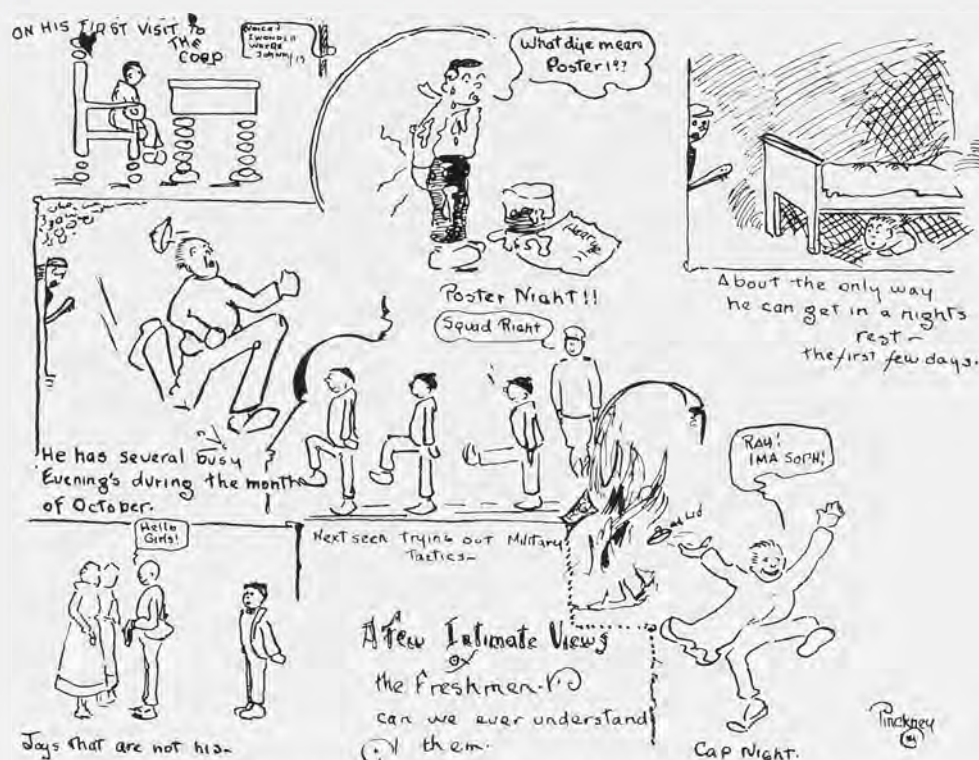 ON HIS FIRST VISIT TO
THE
COOP
Voice:
I WONDER
WHERE
JOHNNY IS
What d'ye mean
Poster!??
Poster Night!!
About the only way
he can get in a nights
rest –
the first few days.
He has several busy
Evening's during the month
of October.
Squad Right
Next seen trying out Military
Tactics –
RAY!
IMA SOPH!
Cap Night.
Hello
Girls!
Joys that are not his –
A Few Intimate Views
of
the Freshmen.
can we ever understand
them.
Pinckney